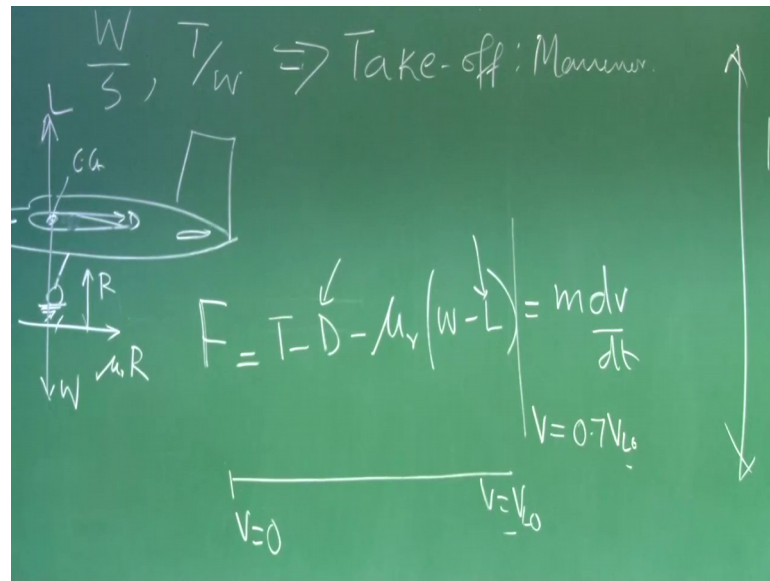 W/S, T/W ⇒ Take-off: Manuver.
L
C.G.
D
R
μᵣR
W
F = T - D - μᵣ(W - L) | = m dv/dt
V = 0.7V_LO
V=0
V=V_LO